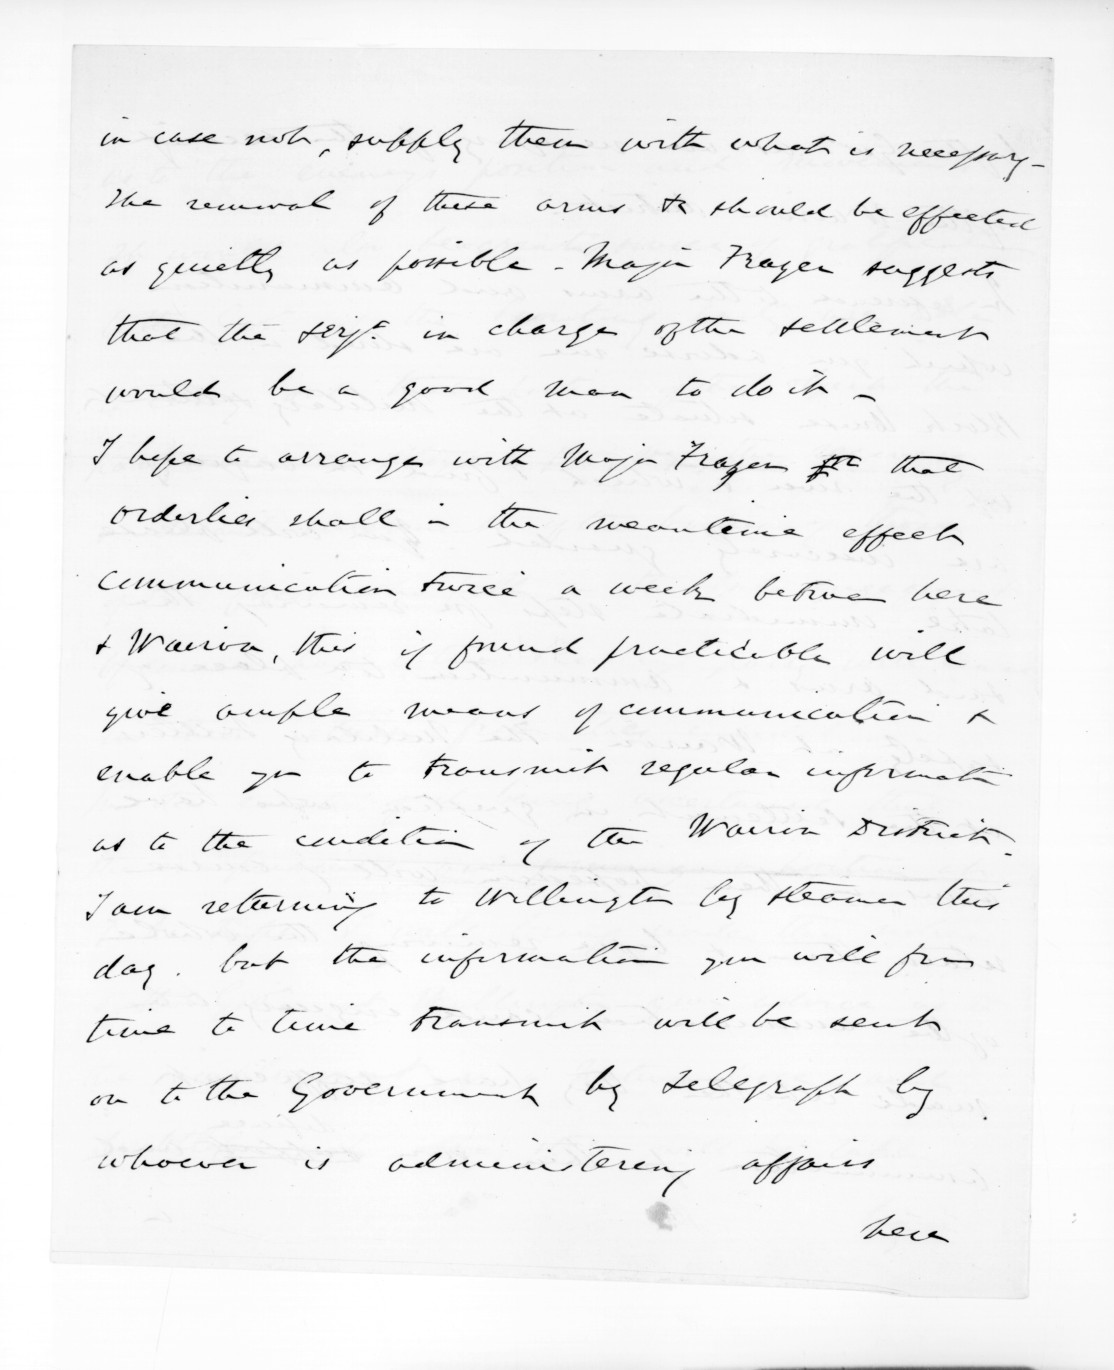 in case not, supply them with what is necessary –
The removal of these arms &c should be effected
as quietly as possible – Major Frazer suggests
that the serjt. in charge of the settlement
would be a good man to do it –
I hope to arrange with Major Frazer that
orderlies shall in the meantime effect
communication twice a week between here
& Wairoa, this if found practicable will
give ample means of communication &
enable you to transmit regular informatn
as to the condition of the Wairoa District.
I am returning to Wellington by steamer this
day. but the information you will from
time to time transmit will be sent
on to the Government by telegraph by
whoever is administering affairs
here